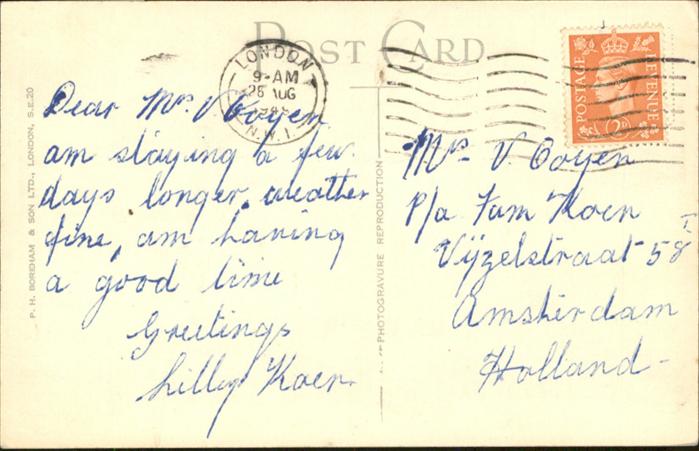 POST CARD
LONDON
9-AM
26 AUG
N.W.1.
POSTAGE
REVENUE
2D
Dear Mrs V Coyen
am staying a few
days longer, weather
fine, am having
a good time
Greetings
Lilly Koen
P. H. BOREHAM & SON LTD., LONDON, S.E.20
PHOTOGRAVURE REPRODUCTION
Mrs V. Coyen
p/a Fam Koen
Vijzelstraat 58 I
Amsterdam
Holland